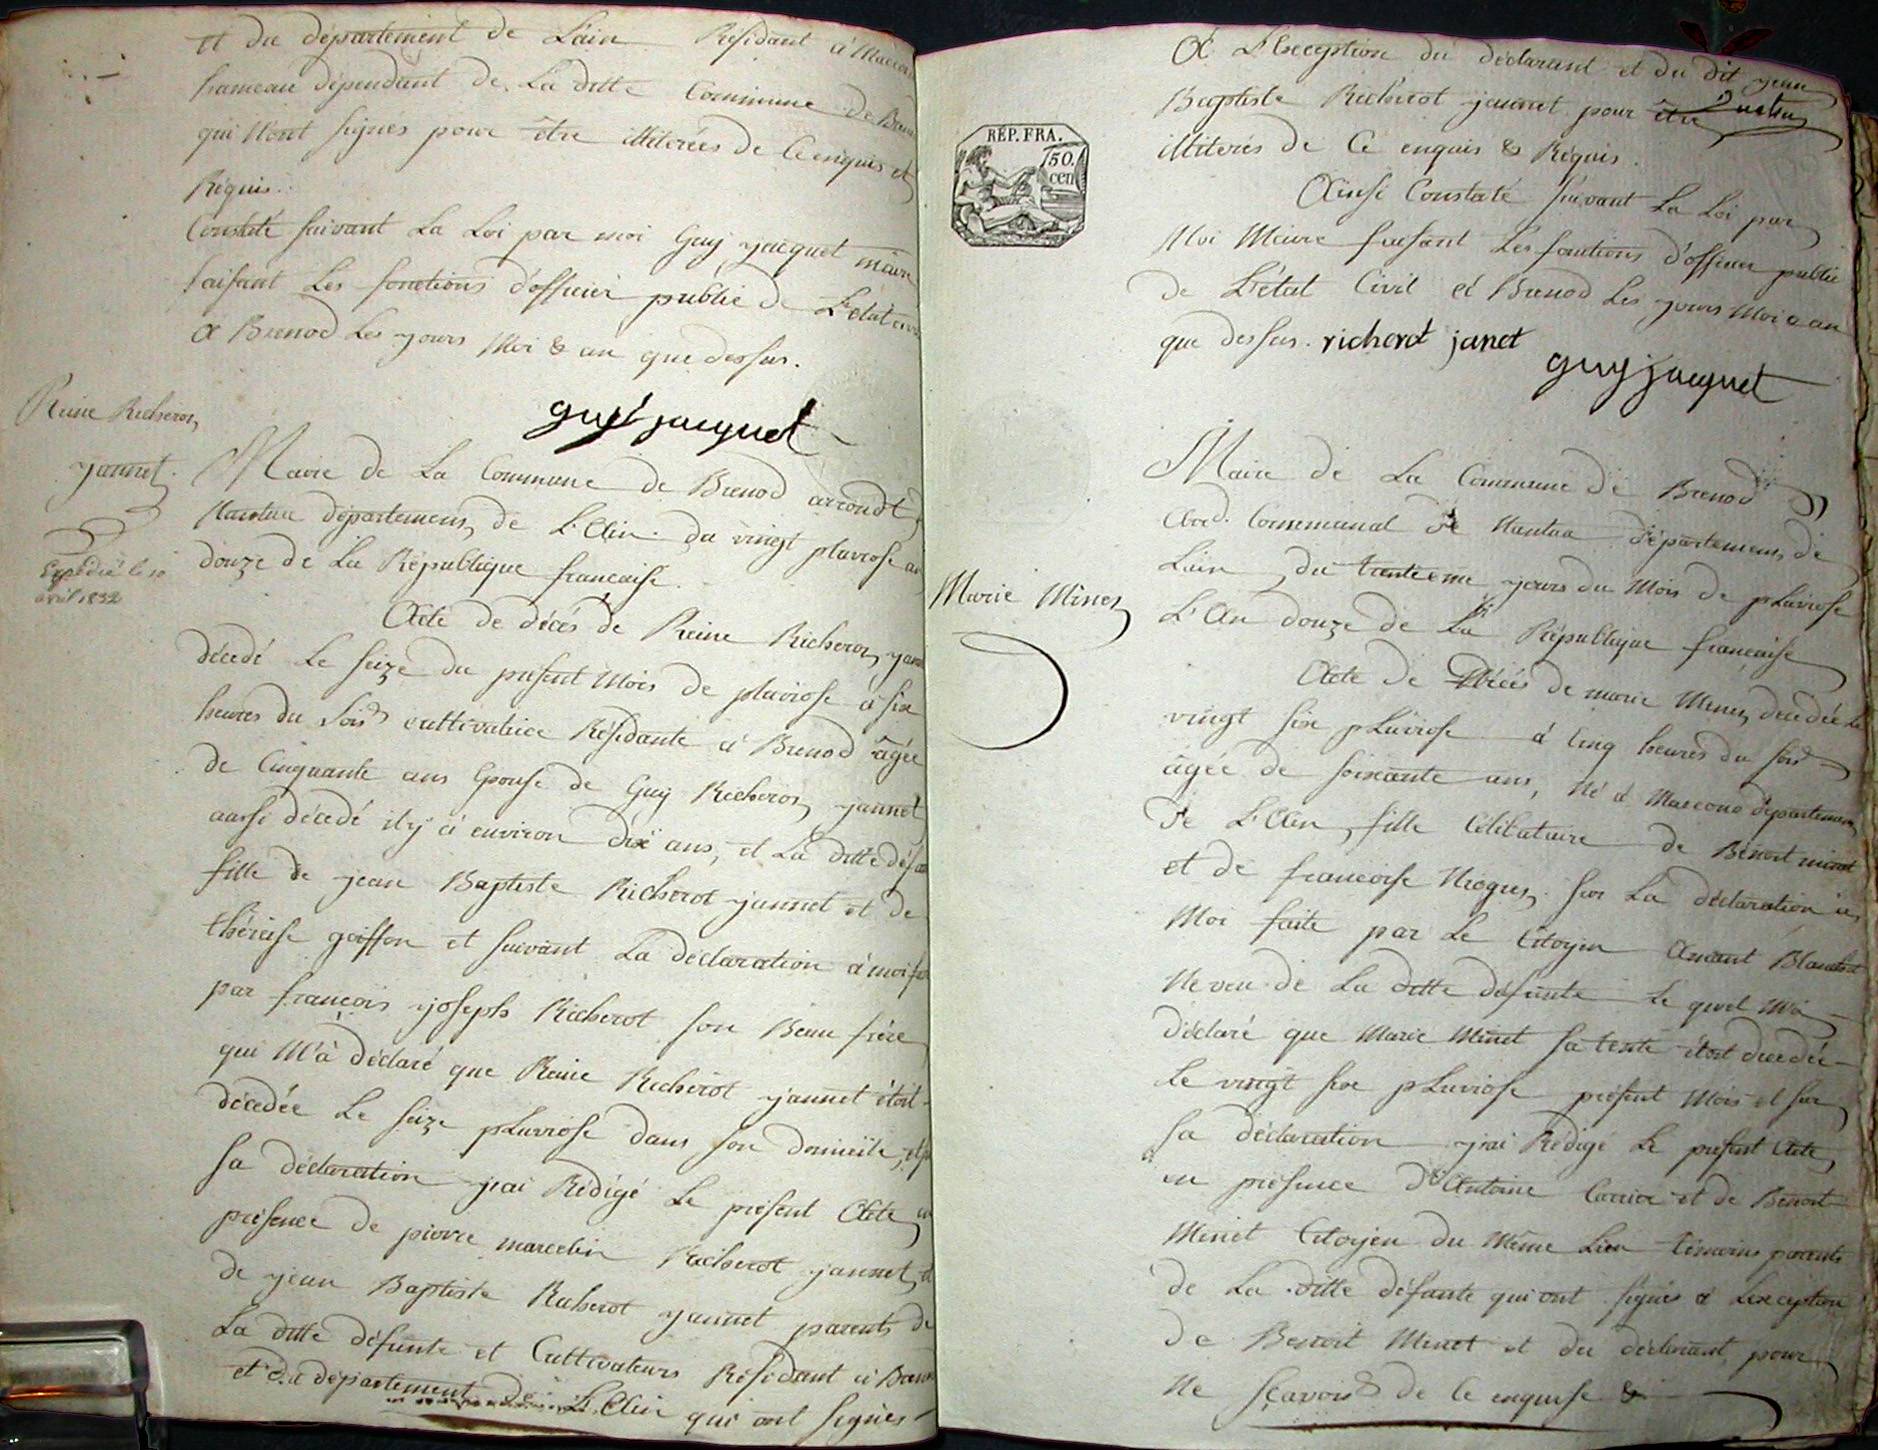 et du département de Lain Résidant à Macconod
hameau dépendant de La ditte Commune de Brenod
qui n'ont signés pour être illiterées de Ce enquis et
Réquis.
Constaté suivant La Loi par moi Guy jacquet maire
faisant Les fonctions d'officier public de L'état civil
A Brenod Les jours Moi & an que dessus.
guy jacquet
Reine Richerot
jannet.
Expédié le 10
avril 1832
Maire de La Commune de Brenod arrondt
Nantua département de L'Ain. du vingt pluviose an
douze de La République francaise.
Acte de décés de Reine Richerot jannet
décédé Le seize du présent Mois de pluviose à six
heures du soir cultivatrice Résidante à Brenod âgée
de Cinquante ans Epouse de Guy Richerot jannet
aussi décedé il y à environ dix ans, et La ditte défunte
fille de jean Baptiste Richerot jannet et de
thérèise goiffon et suivant La déclaration à moi faite
par françois joseph Richerot son Beau frère
qui M'à déclaré que Reine Richerot jannet étoit
décédée Le seize pluviose dans son domicile, et sur
sa déclaration j'ai Rédigé Le présent Acte en
présence de pierre marcelin Richerot jannet, et
de jean Baptiste Richerot jannet parents de
La ditte défunte et Cultivateurs Résidant à Brenod
et du département de L'Ain qui ont signés
A L'Exception du déclarant et du dit jean
Baptiste Richerot jannet pour être
illiterés de Ce enquis & Réquis.
RÉP. FRA.
50.
cen
Ainsi Constaté suivant La Loi par
Moi Maire faisant Les fonctions d'officier public
de L'état Civil à Brenod Les jours Moi & an
que dessus. richerot janet
guy jacquet
Marie Minet
Maire de La Commune de Brenod
Arrd. Communal de Nantua département de
Lain du trentieme jours du Mois de pluviose
L'An douze de La République francaise
Acte de Décés de marie Minet décédée Le
vingt six pluviose à cinq heures du soir
âgée de soixante ans, Né à Macconod département
de L'Ain fille Célibataire de Benoit minet
et de francoise Niogret. sur La déclaration à
Moi faite par Le Citoyen Amant Blanchet
Neveu de La ditte défunte Le quel M'à
déclaré que Marie Minet sa tente étoit décédée
Le vingt six pluviose présent Mois et sur
sa déclaration j'ai Rédigé Le présent Acte
en présence d'Antoine Carrier et de Benoit
Minet Citoyen du Même Lieu témoins parents
de La ditte défunte qui ont signés à Lexception
de Benoit Minet et du déclarant pour
Ne sçavoir de Ce enquise &